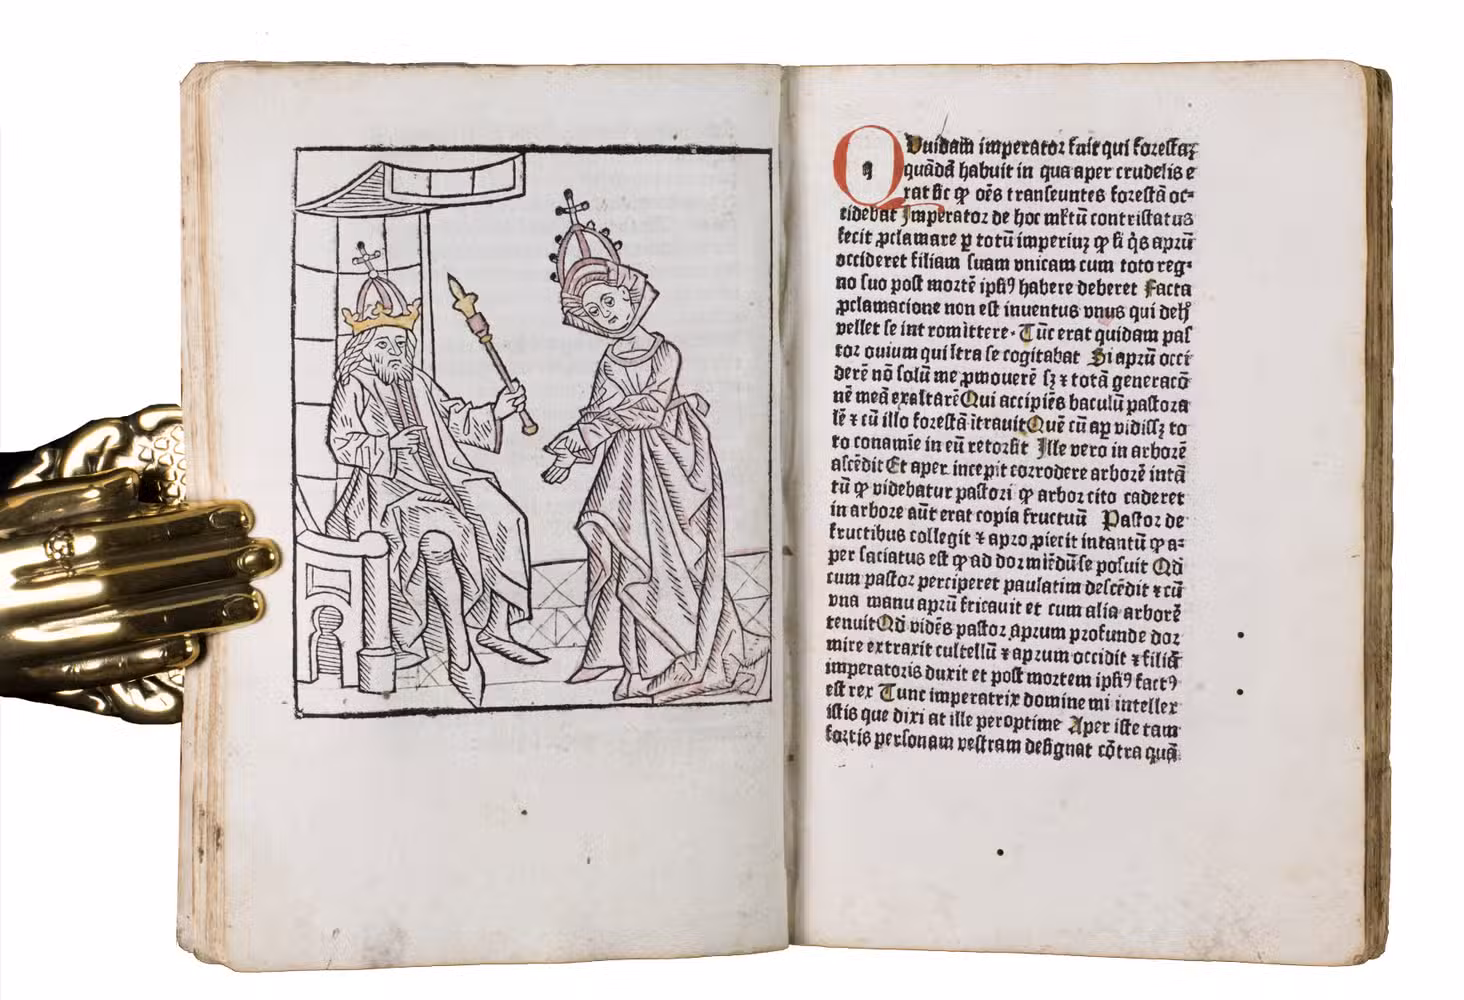 Quidam imperator fuit qui forestaꝫ
quādā habuit in qua aper crudelis e
rat sic ꝙ oēs transeuntes forestā oc⸗
cidebat Imperator de hoc mltū contristatus
fecit ꝓclamare ꝑ totū imperiuꝫ ꝙ si q̇s aprū
occideret filiam suam vnicam cum toto reg⸗
no suo post mortē ipsiꝰ habere deberet Facta
ꝓclamacione non est inuentus vnus qui de
vellet se int romittere. Tūc erat quidam pas
tor ouium qui ītra se cogitabat Si aprū occi
derē nō solū me ꝓmouerē sꝫ ⁊ totā generacō
nē meā exaltarē Qui accipiēs baculū pastora
lē ⁊ cū illo forestā ītrauit Quē cū aꝑ vidissꝫ to
to conamīe in eū retorsit Ille vero in arborē
ascēdit Et aper incepit corrodere arborē intā
tū ꝙ videbatur pastori ꝙ arbor cito caderet
in arbore aūt erat copia fructuū Pastor de
fructibus collegit ⁊ apro ꝓiecit intantū ꝙ a⸗
per saciatus est ꝙ ad dormiēdū se posuit Qd̄
cum pastor perciperet paulatim descēdit ⁊ cū
vna manu aprū fricauit et cum alia arborē
tenuit Qd̄ vidēs pastor aprum profunde dor
mire extraxit cultellū ⁊ aprum occidit ⁊ filiā
imperatoris duxit et post mortem ipsiꝰ factꝰ
est rex Tunc imperatrix domine mi intellex
istis que dixi at ille peroptime Aper iste tam
fortis personam vestram designat cōtra quā